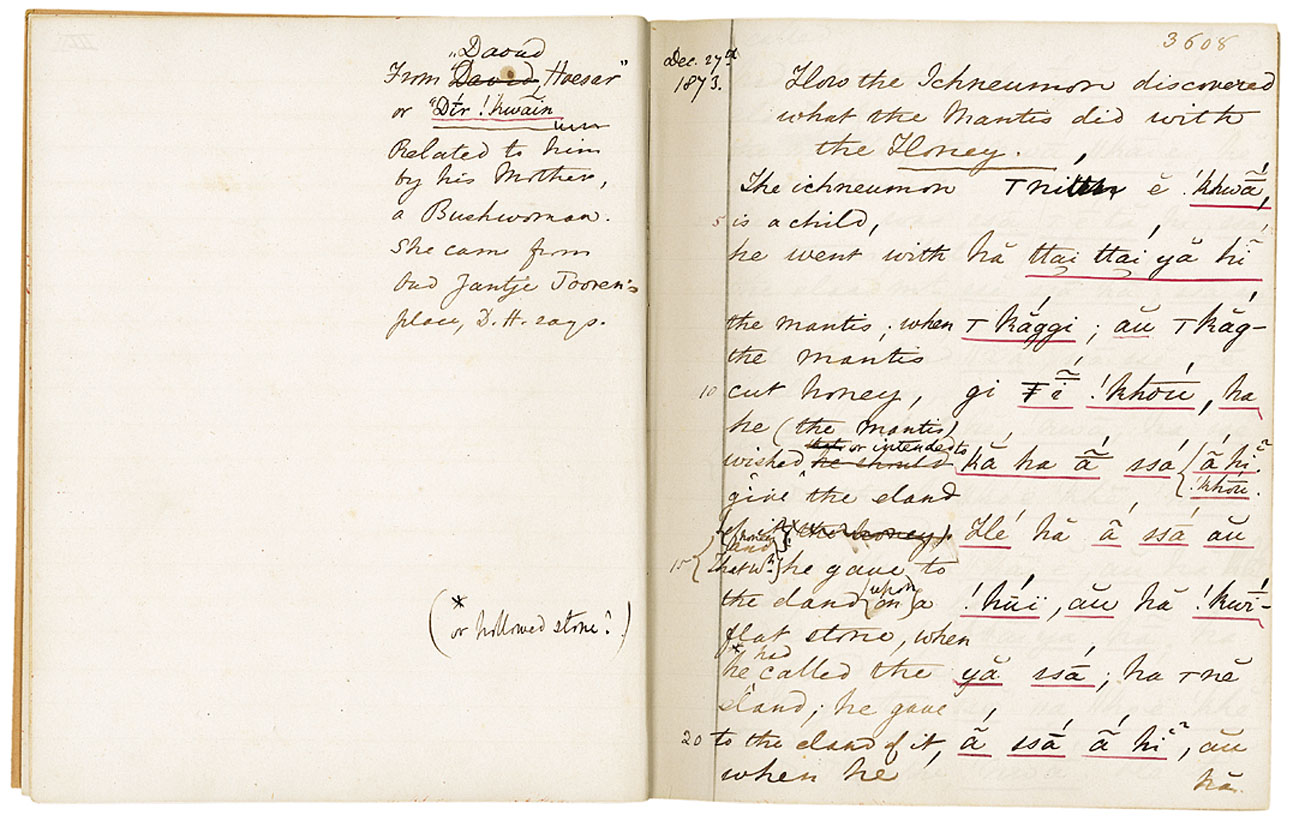 "Daoud
From "David, Hoesar"
or "Dír !kwāin
Related to him
by his Mother,
a Bushwoman.
She came from
Oud Jantje Tooren's
place, D. H. says.
(* or hollowed stone?)
3608
Dec. 27th
1873.
How the Ichneumon discovered
what the Mantis did with
the Honey.
The ichneumon ĕ !khwā̃,
5 is a child,
he went with hă ttai ttai yă hĩ
the mantis; when ⊤ kággi; ău ⊤ kăg-
the mantis
10 cut honey, gi !khōu, ha
he (the mantis)
wished he should or intended to kă ha ā̃ ssá {ā̃ hĩ !khóu.
give the eland
(the honey) Hé hă ā̃ ssā́ ău
15 {That wh.} he gave to
the eland (upon) on a !húï, ău hă !kwī-
flat stone, when
* he had called the yă ssā́; ha ⊤ nĕ
eland; he gave
20 to the eland of it, ā̃ ssā́ ā̃ hĩ, ău
when he
hă